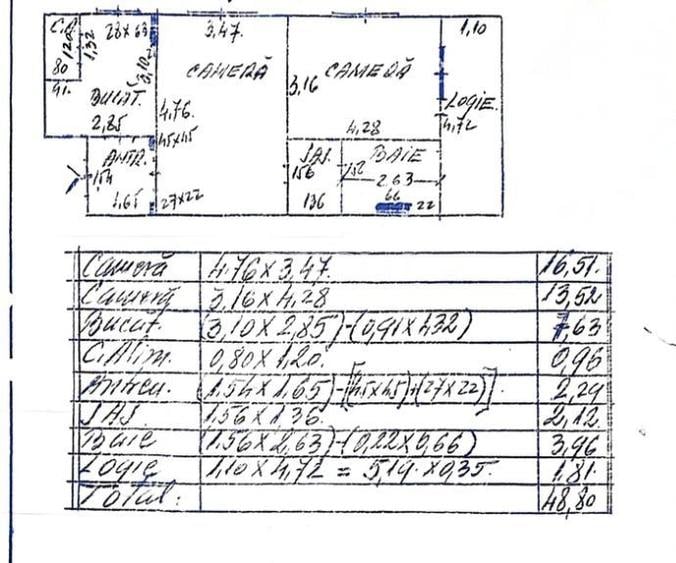 C.A. 120 1,32 28x63 3,47. 1,10
80 3,10
CAMERĂ 3,16 CAMERĂ
91.
BUCAT. 4,76. LOGIE.
2,85 4,28 4,72
45x45
ANTR. SAS. BAIE
154 156 152 2,63
1,65 27x22 136 66 22
Cameră 4.76 x 3,47. 16,51.
Cameră 3,16 x 4,28 13,52
Bucat. (3,10 x 2,85) - (0,91 x 1,32) 7,63
C. Alim. 0,80 x 1,20. 0,96
Antreu. (1.54 x 1,65) - [(45x45) + (27x22)]. 2,29
SAS. 1,56 x 1,36. 2,12.
Baie (1.56 x 2,63) - (0,22 x 0,66) 3,96
Logie 1,10 x 4,72 = 5,19. x 0,35. 1,81.
Total. 48,80